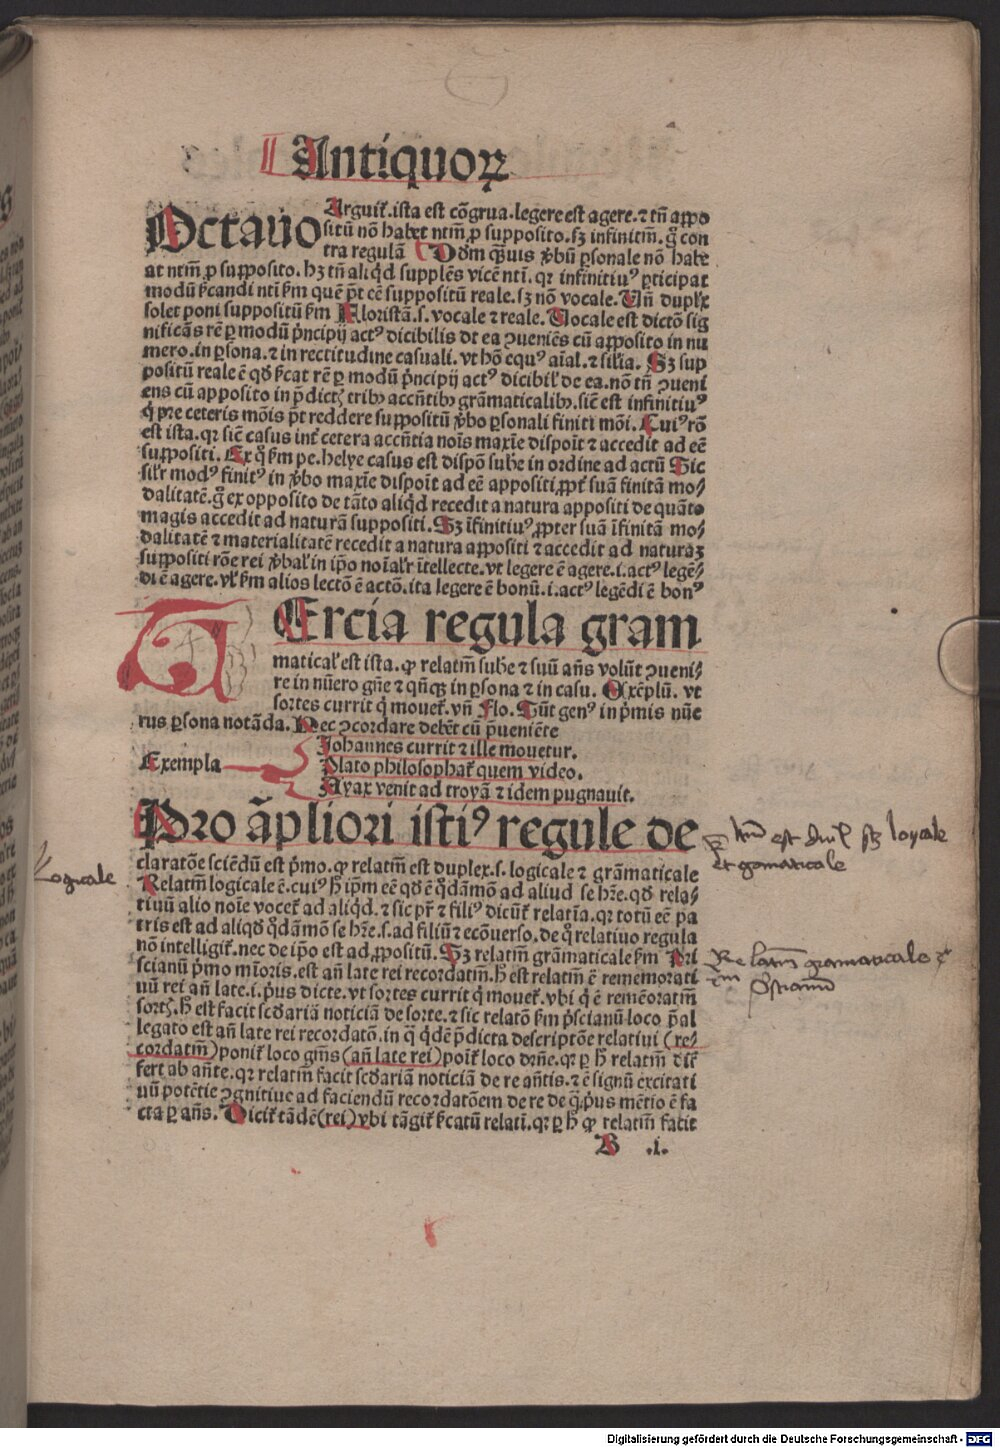 Antiquoꝝ
Octauo Arguit̃. ista est cōgrua. legere est agere. ⁊ tñ appo
sitū nō habet ntm̄ ꝓ supposito. sꝫ infinitm̄. g̊ con
tra regulā Dōm qꝫuis ꝟbū ꝑsonale nō habe
at ntm̄ ꝓ supposito. hꝫ tñ aliqd̓ supplēs vicē ntī. qꝛ infinitiuꝰ ꝑticipat
modū ſ̓candi ntī ẜm quē pōt eē suppositū reale. sꝫ nō vocale. Uñ duplex
solet poni suppositū ẜm Floristā. s. vocale ⁊ reale. Uocale est dictō sig
nificās rē ꝑ modū p̓ncipij actꝰ dicibilis de ea ꝯueniēs cū apposito in nu
mero. in ꝑsona. ⁊ in rectitudine casuali. vt hō equꝰ aīal. ⁊ sil̓ia. Sꝫ sup
positū reale ē qd̓ ſ̓cat rē ꝑ modū p̓ncipij actꝰ dicibil̓ de ea. nō tñ ꝯueni
ens cū apposito in p̄dictꝭ tribꝫ accn̄tibꝫ grāmaticalibꝫ. sic̄ est infinitiuꝰ
q̓ pre ceteris mōis pōt reddere suppositū ꝟbo ꝑsonali finiti mōi. Cuiꝰ rō
est ista. qꝛ sic̄ casus int̓ cetera accn̄tia noīs maxīe disponit ⁊ accedit ad eē
suppositi. Ex q̊ ẜm pe. helye casus est dispō sube in ordine ad actū Sic
sil̓r modꝰ finitꝰ in ꝟbo maxīe disponit ad eē appositi ꝓpt̓ suā finitā mo⸗
dalitatē. g̊ ex opposito de tāto aliqd̓ recedit a natura appositi de quāto
magis accedit ad naturā suppositi. Sꝫ īfinitiuꝰ ꝓpter suā īfinitā mo⸗
dalitatē ⁊ materialitatē recedit a natura appositi ⁊ accedit ad naturaꝫ
suppositi rōe rei ꝟbal̓ in ip̄o noīal̓r ītellecte. vt legere ē agere. i. actꝰ legē⸗
di ē agere. vl̓ ẜm alios lectō ē actō. ita legere ē bonū. i. actꝰ legēdi ē bonꝰ
TErcia regula gram
matical̓ est ista. ꝙ relatm̄ sube ⁊ suū añs volūt ꝯueni⸗
re in nūero gn̄e ⁊ qn̄qꝫ in ꝑsona ⁊ in casu. Exēplū. vt
sortes currit q̓ mouet̃. vñ Flo. Sūt genꝰ in p̓mis nūe
rus ꝑsona notāda. Nec ꝯcordare debēt cū p̄ueniēte
Johannes currit ⁊ ille mouetur.
Exempla Plato philosophat̃ quem video.
Ayax venit ad troyā ⁊ idem pugnauit.
Pro āpliori istiꝰ regule de
claratōe sciēdū est p̓mo. ꝙ relatm̄ est duplex. s. logicale ⁊ grāmaticale
Relatm̄ logicale ē. cuiꝰ h̓ ip̄m eē qd̓ ē qd̓āmō ad aliud se hr̄e. qd̓ rela⸗
tiuū alio noīe vocet̃ ad aliqd̓. ⁊ sic pr̄ ⁊ filiꝰ dicūt̃ relatīa. qꝛ totū eē pa
tris est ad aliqd̓ qd̓āmō se hr̄e. s. ad filiū ⁊ ecōuerso. de q̊ relatiuo regula
nō intelligit̃. nec de ip̄o est ad ꝓpositū. Sꝫ relatm̄ grāmaticale ẜm Pri
scianū p̓mo mīoris. est añ late rei recordatm̄. h̓ est relatm̄ ē rememorati
uū rei añ late. i. p̓us dicte. vt sortes currit q̓ mouet̃. vbi q̓ ē remēoratm̄
sortꝭ. h̓ est facit scd̓ariā noticiā de sorte. ⁊ sic relatō ẜm p̓scianū loco p̄al
legato est añ late rei recordatō. in q̊ qd̓ē p̄dicta descriptōe relatiui (re⸗
cordatm̄) ponit̃ loco gn̄is (añ late rei) poīt̃ loco dr̄ne. qꝛ ꝑ h̓ relatm̄ dif
fert ab añte. qꝛ relatm̄ facit scd̓ariā noticiā de re añtis. ⁊ ē signū excitati
uū potētie ꝯgnitiue ad faciendū recordatōem de re de q̊ p̓us mētio ē fa
cta ꝑ añs. Dicit̃ tādē (rei) ꝟbi tāgit̃ ſ̓catū relatī. qꝛ ꝑ h̓ ꝙ relatm̄ facit
B .i.
logicale
est dupl̓
et gramaticale
Relatm̄ gramaticale
Digitalisierung gefördert durch die Deutsche Forschungsgemeinschaft - DFG